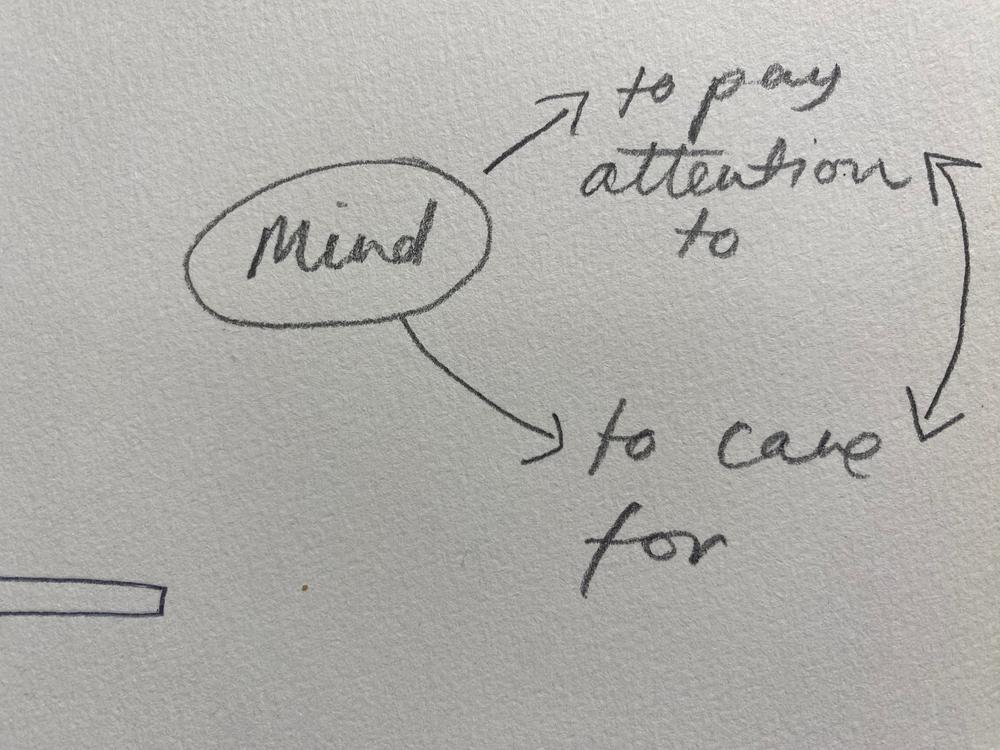 Mind
to pay
attention
to
to care
for